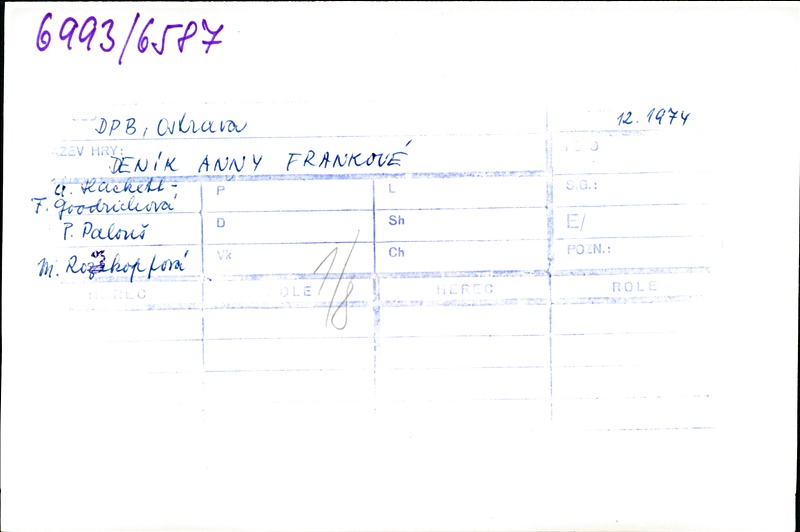 6993/6587
DPB, Ostrava 12.1974
ZEV HRY:
DENÍK ANNY FRANKOVÉ
A. Hackett - P L S.G.:
F. Goodrichová
P. Palouš D Sh E/
M. Rozskopfová Vk Ch POZN.:
HEREC ROLE HEREC ROLE
1/8